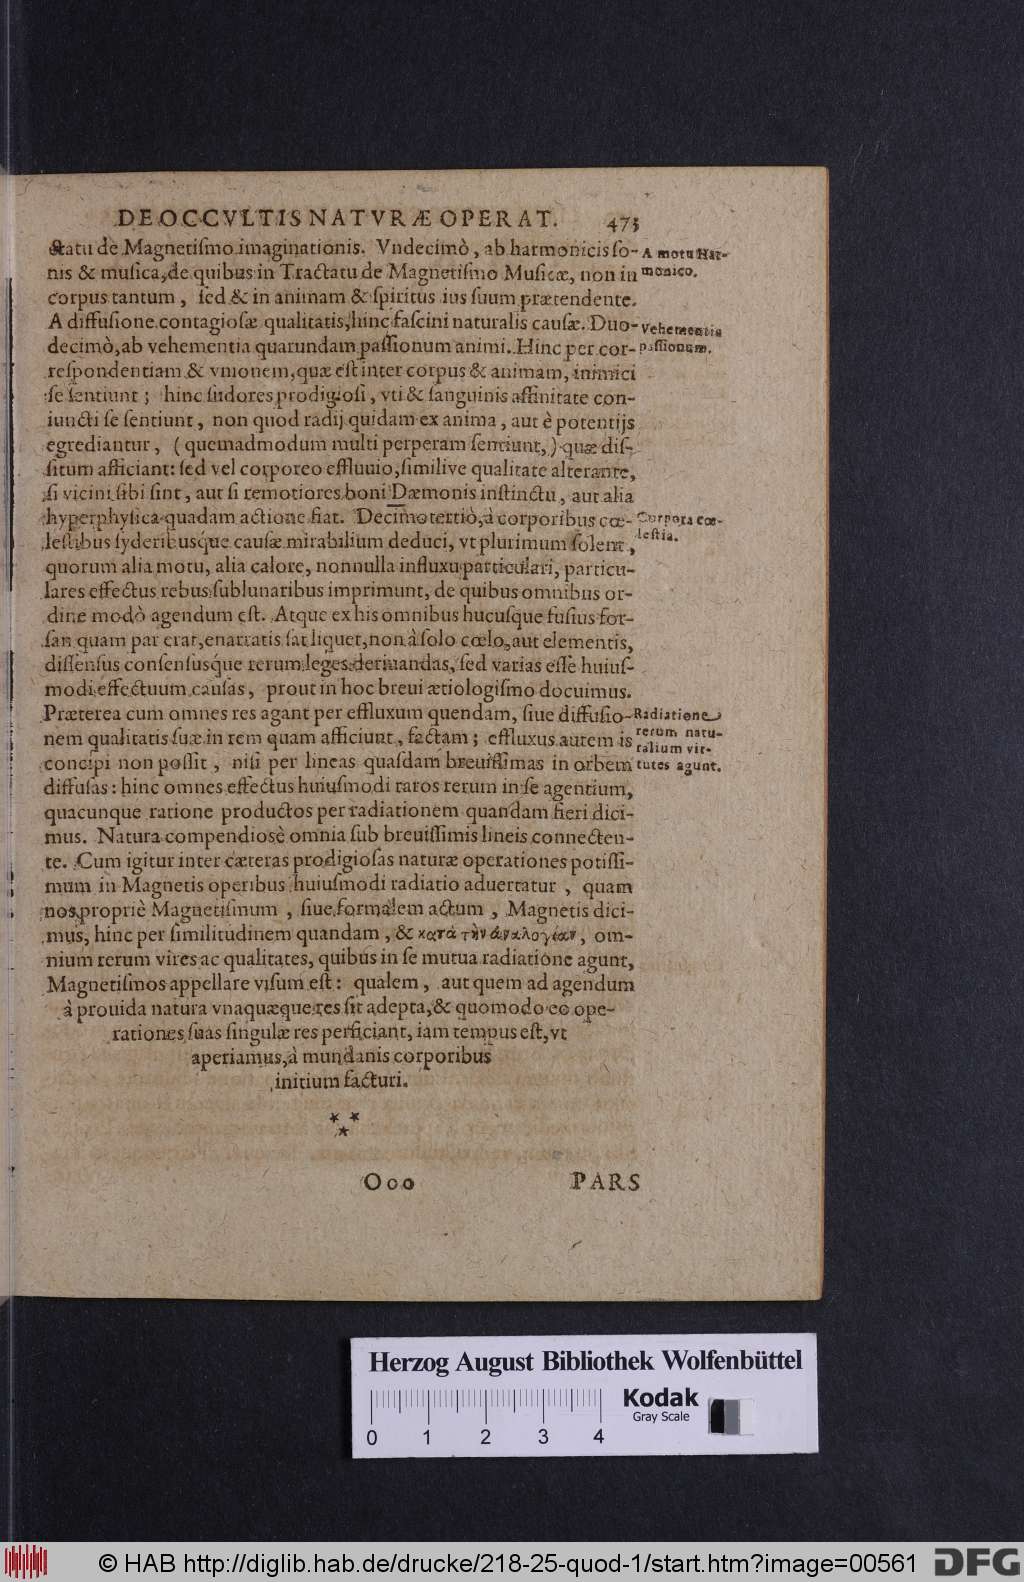 DE OCCVLTIS NATVRÆ OPERAT. 473
ctatu de Magnetiſmo imaginationis. Vndecimò, ab harmonicis ſo-
nis & muſica, de quibus in Tractatu de Magnetiſmo Muſicæ, non in
corpus tantum, ſed & in animam & ſpiritus ius ſuum prætendente.
A diffuſione contagioſæ qualitatis, hinc faſcini naturalis cauſæ. Duo-
decimò, ab vehementia quarundam paſſionum animi. Hinc per cor-
reſpondentiam & vnionem, quæ eſt inter corpus & animam, inimici
ſe ſentiunt; hinc ſudores prodigioſi, vti & ſanguinis affinitate con-
iuncti ſe ſentiunt, non quod radij quidam ex anima, aut è potentijs
egrediantur, (quemadmodum multi perperam ſentiunt,) quæ diſ-
ſitum afficiant: ſed vel corporeo effluuio, ſimilive qualitate alterante,
ſi vicini ſibi ſint, aut ſi remotiores boni Dæmonis inſtinctu, aut alia
hyperphyſica quadam actione fiat. Decimotertiò, à corporibus cœ-
leſtibus ſyderibusq́ue cauſæ mirabilium deduci, vt plurimum ſolent,
quorum alia motu, alia calore, nonnulla influxu particulari, particu-
lares effectus rebus ſublunaribus imprimunt, de quibus omnibus or-
dine modò agendum eſt. Atque ex his omnibus hucuſque fuſius for-
ſan quam par erat, enarratis ſat liquet, non à ſolo cœlo, aut elementis,
diſſenſus conſenſusq́ue rerum leges deriuandas, ſed varias eſſe huiuſ-
modi effectuum cauſas, prout in hoc breui ætiologiſmo docuimus.
Præterea cum omnes res agant per effluxum quendam, ſiue diffuſio-
nem qualitatis ſuæ in rem quam afficiunt, factam; effluxus autem is
concipi non poſſit, niſi per lineas quaſdam breuiſſimas in orbem
diffuſas: hinc omnes effectus huiuſmodi raros rerum in ſe agentium,
quacunque ratione productos per radiationem quandam fieri dici-
mus. Natura compendiosè omnia ſub breuiſſimis lineis connecten-
te. Cum igitur inter cæteras prodigioſas naturæ operationes potiſſi-
mum in Magnetis operibus huiuſmodi radiatio aduertatur, quam
nos propriè Magnetiſmum, ſiue formalem actum, Magnetis dici-
mus, hinc per ſimilitudinem quandam, & κατὰ τὴν ἀναλογίαν, om-
nium rerum vires ac qualitates, quibus in ſe mutua radiatione agunt,
Magnetiſmos appellare viſum eſt: qualem, aut quem ad agendum
à prouida natura vnaquæque res ſit adepta, & quomodo eo ope-
rationes ſuas ſingulæ res perficiant, iam tempus eſt, vt
aperiamus, à mundanis corporibus
initium facturi.
* *
*
Ooo PARS
A motu Har-
monico.
Vehementia
paſſionum.
Corpora cœ-
leſtia.
Radiatione
rerum natu-
ralium vir-
tutes agunt.
Herzog August Bibliothek Wolfenbüttel
Kodak
Gray Scale
0 1 2 3 4
© HAB http://diglib.hab.de/drucke/218-25-quod-1/start.htm?image=00561 DFG